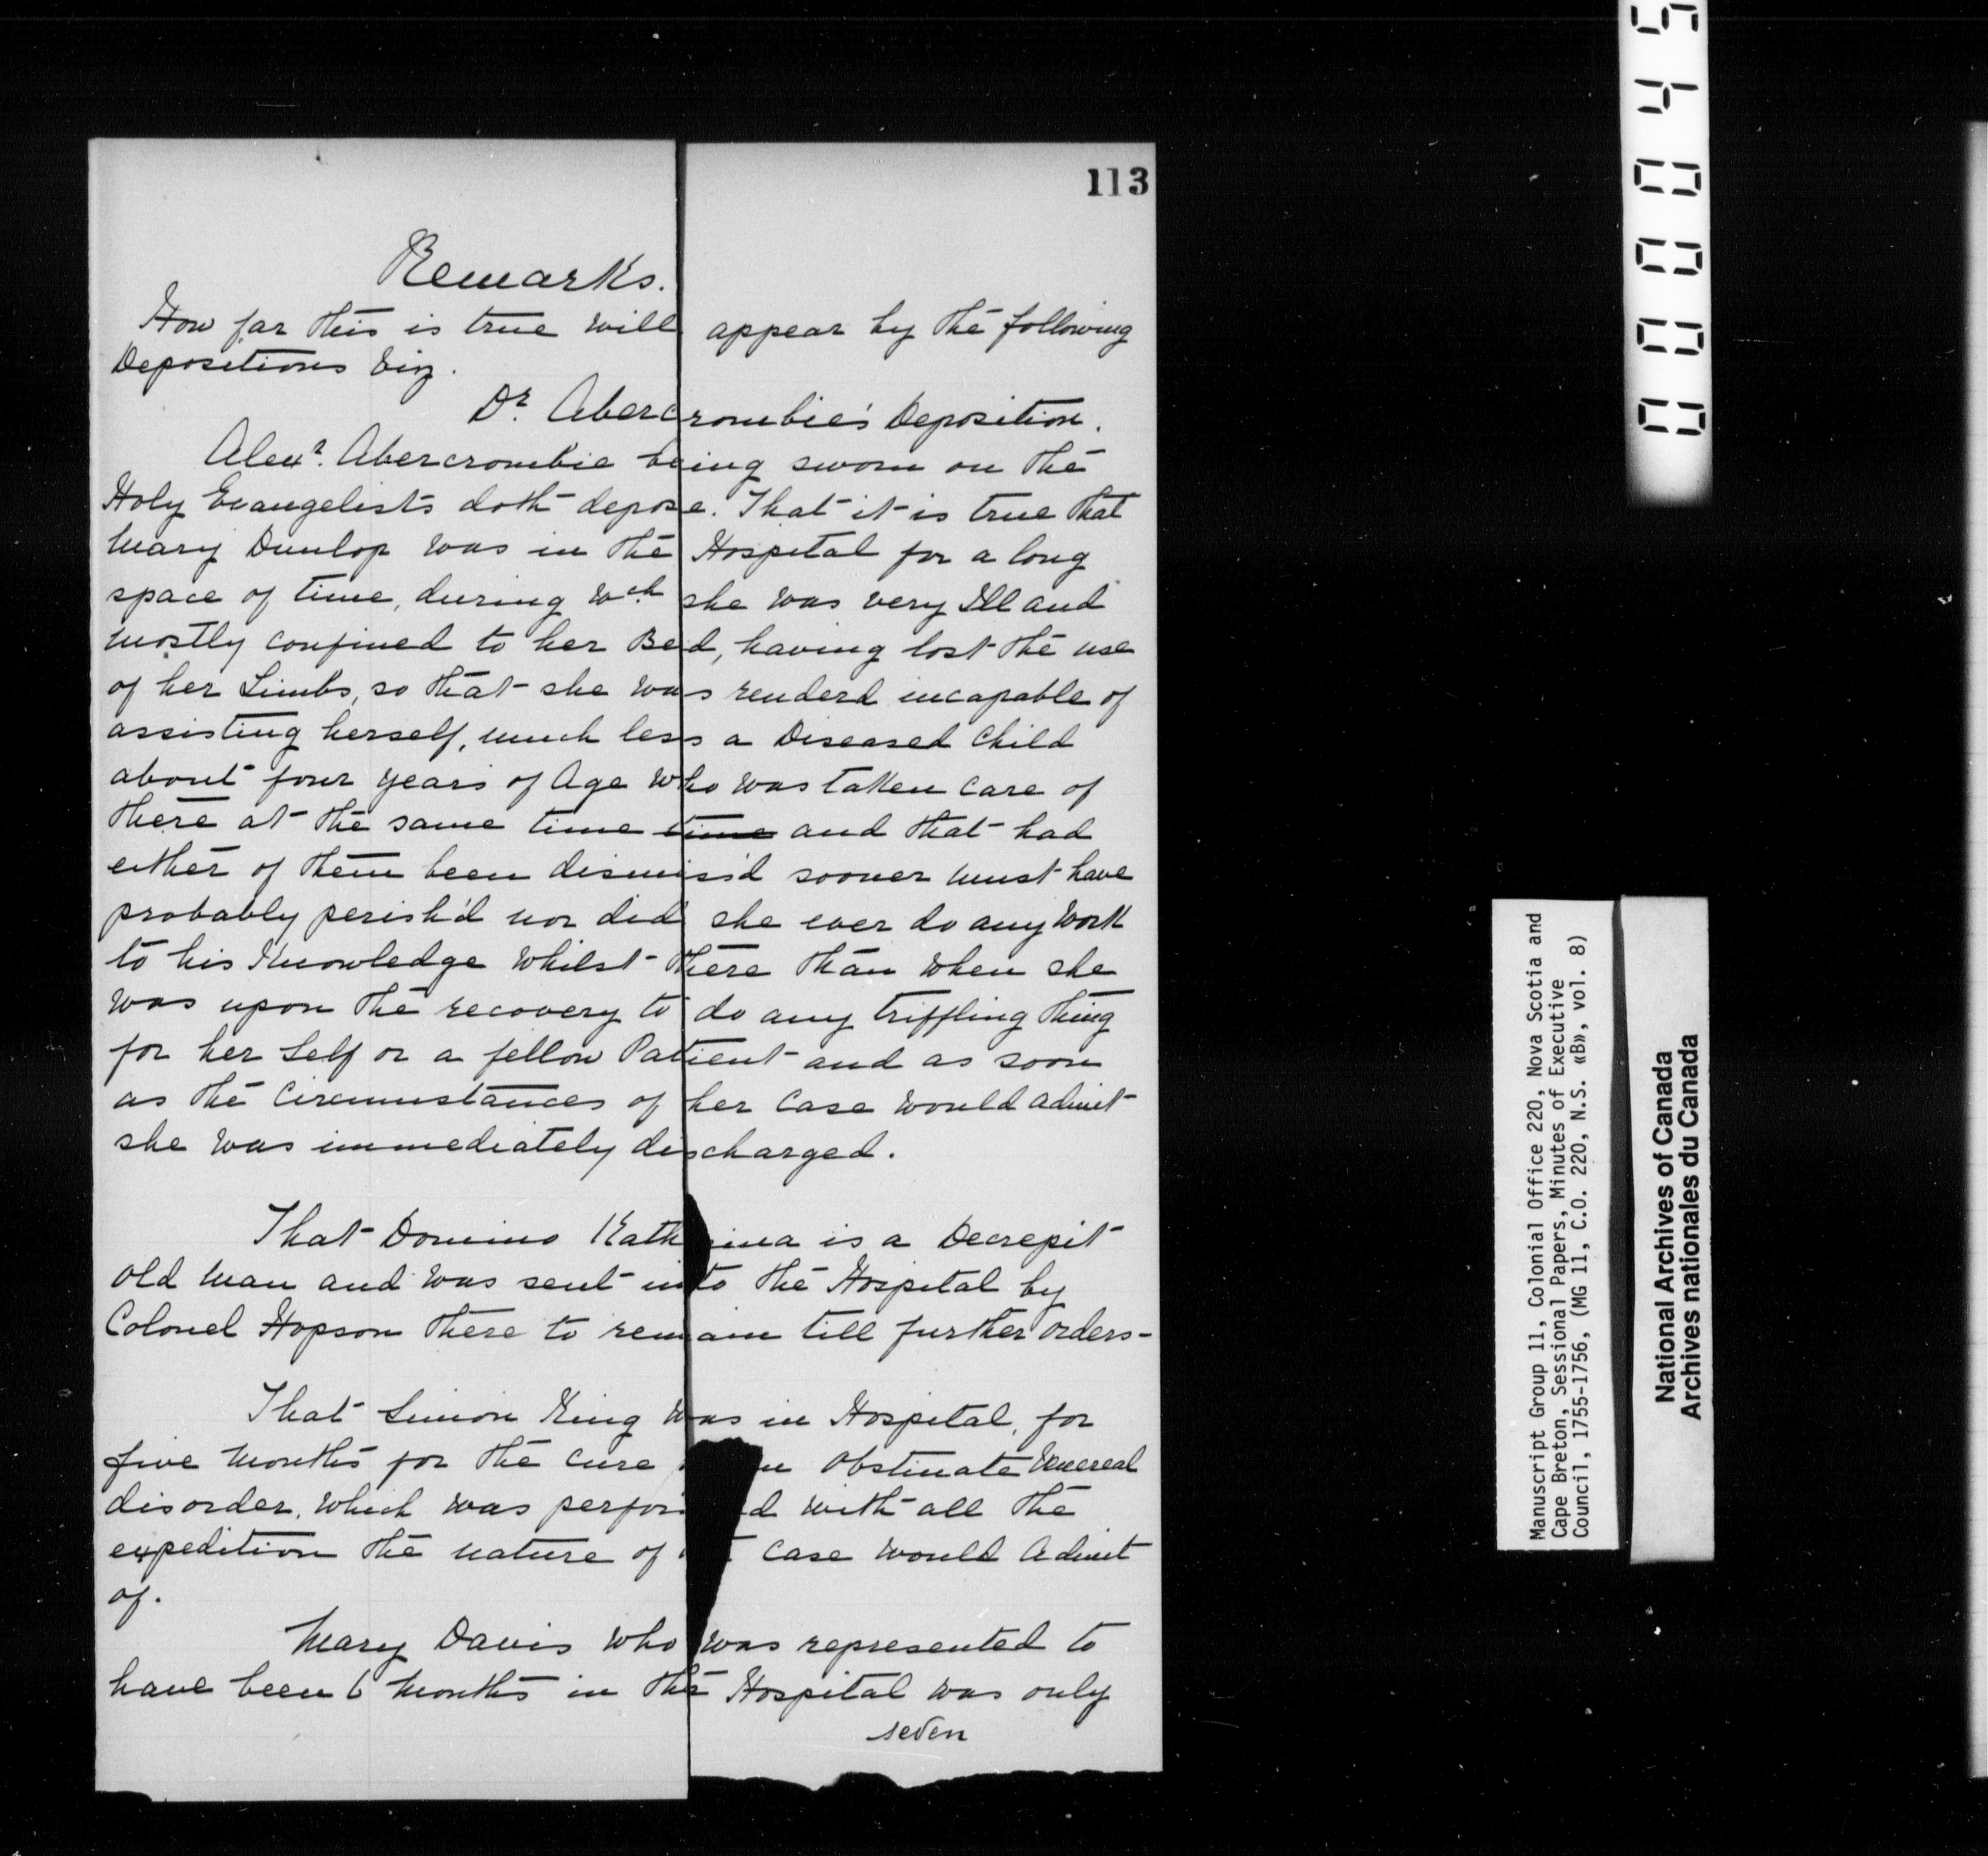 113
Remarks.
How far this is true will appear by the following
Depositions Viz.
Dr. Abercrombie's Deposition.
Alexr. Abercrombie being sworn on the
Holy Evangelists doth depose. That it is true that
Mary Dunlop was in the Hospital for a long
space of time, during wch. she was very Ill and
mostly confined to her Bed, having lost the use
of her Limbs, so that she was renderd incapable of
assisting herself, much less a Diseased Child
about four years of Age who was taken care of
there at the same time time and that had
either of them been dismiss'd sooner must have
probably perish'd nor did she ever do any work
to his Knowledge whilst there than when she
was upon the recovery to do any triffling thing
for her Self or a fellow Patient and as soon
as the Circumstances of her Case would admit
she was immediately discharged.
That Domino is a Decrepit
old man and was sent into the Hospital by
Colonel Hopson there to remain till further orders-
That Simon King was in Hospital, for
five months for the cure obstinate Venereal
disorder, which was with all the
expedition the nature of case would admit
of.
Mary Davis who was represented to
have been 6 months in the Hospital was only
seven
00045
Manuscript Group 11, Colonial Office 220, Nova Scotia and
Cape Breton, Sessional Papers, Minutes of Executive
Council, 1755-1756, (MG 11, C.O. 220, N.S. «B», vol. 8)
National Archives of Canada
Archives nationales du Canada